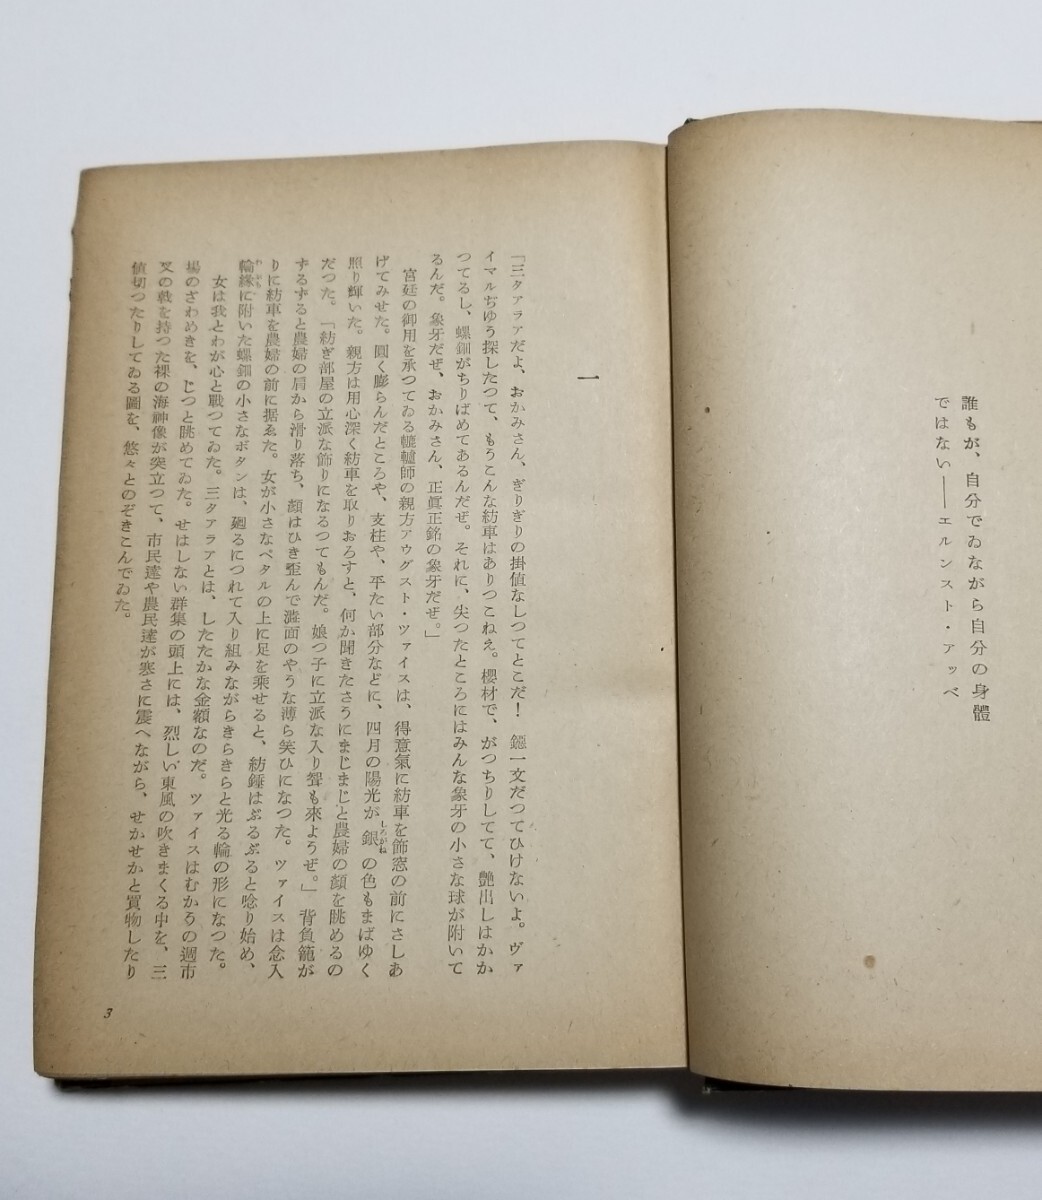 誰もが、自分でゐながら自分の身體
ではない——エルンスト・アッベ
一
「三タァラアだよ、おかみさん、ぎりぎりの掛値なしつてとこだ！　鐚一文だつてひけないよ。ヴァ
イマルぢゆう探したつて、もうこんな紡車はありつこねえ。櫻材で、がつちりしてて、艶出しはかか
つてるし、螺鈿がちりばめてあるんだぜ。それに、尖つたところにはみんな象牙の小さな球が附いて
るんだ。象牙だぜ、おかみさん、正眞正銘の象牙だぜ。」
宮廷の御用を承つてゐる轆轤師の親方アウグスト・ツァイスは、得意氣に紡車を飾窓の前にさしあ
げてみせた。圓く膨らんだところや、支柱や、平たい部分などに、四月の陽光が銀しろがねの色もまばゆく
照り輝いた。親方は用心深く紡車を取りおろすと、何か聞きたさうにまじまじと農婦の顏を眺めるの
だつた。「紡ぎ部屋の立派な飾りになるつてもんだ。娘つ子に立派な入り聟も來ようぜ。」背負籠が
ずるずると農婦の肩から滑り落ち、顏はひき歪んで澁面のやうな薄ら笑ひになつた。ツァイスは念入
りに紡車を農婦の前に据ゑた。女が小さなペタルの上に足を乘せると、紡錘はぶるぶると唸り始め、
輪緣に附いた螺鈿の小さなボタンは、廻るにつれて入り組みながらきらきらと光る輪の形になつた。
女は我とわが心と戰つてゐた。三タァラアとは、したたかな金額なのだ。ツァイスはむかうの週市
場のざわめきを、じつと眺めてゐた。せはしない群集の頭上には、烈しい東風の吹きまくる中を、三
叉の戟を持つた裸の海神像が突立つて、市民達や農民達が寒さに震へながら、せかせかと買物したり
値切つたりしてゐる圖を、悠々とのぞきこんでゐた。
3